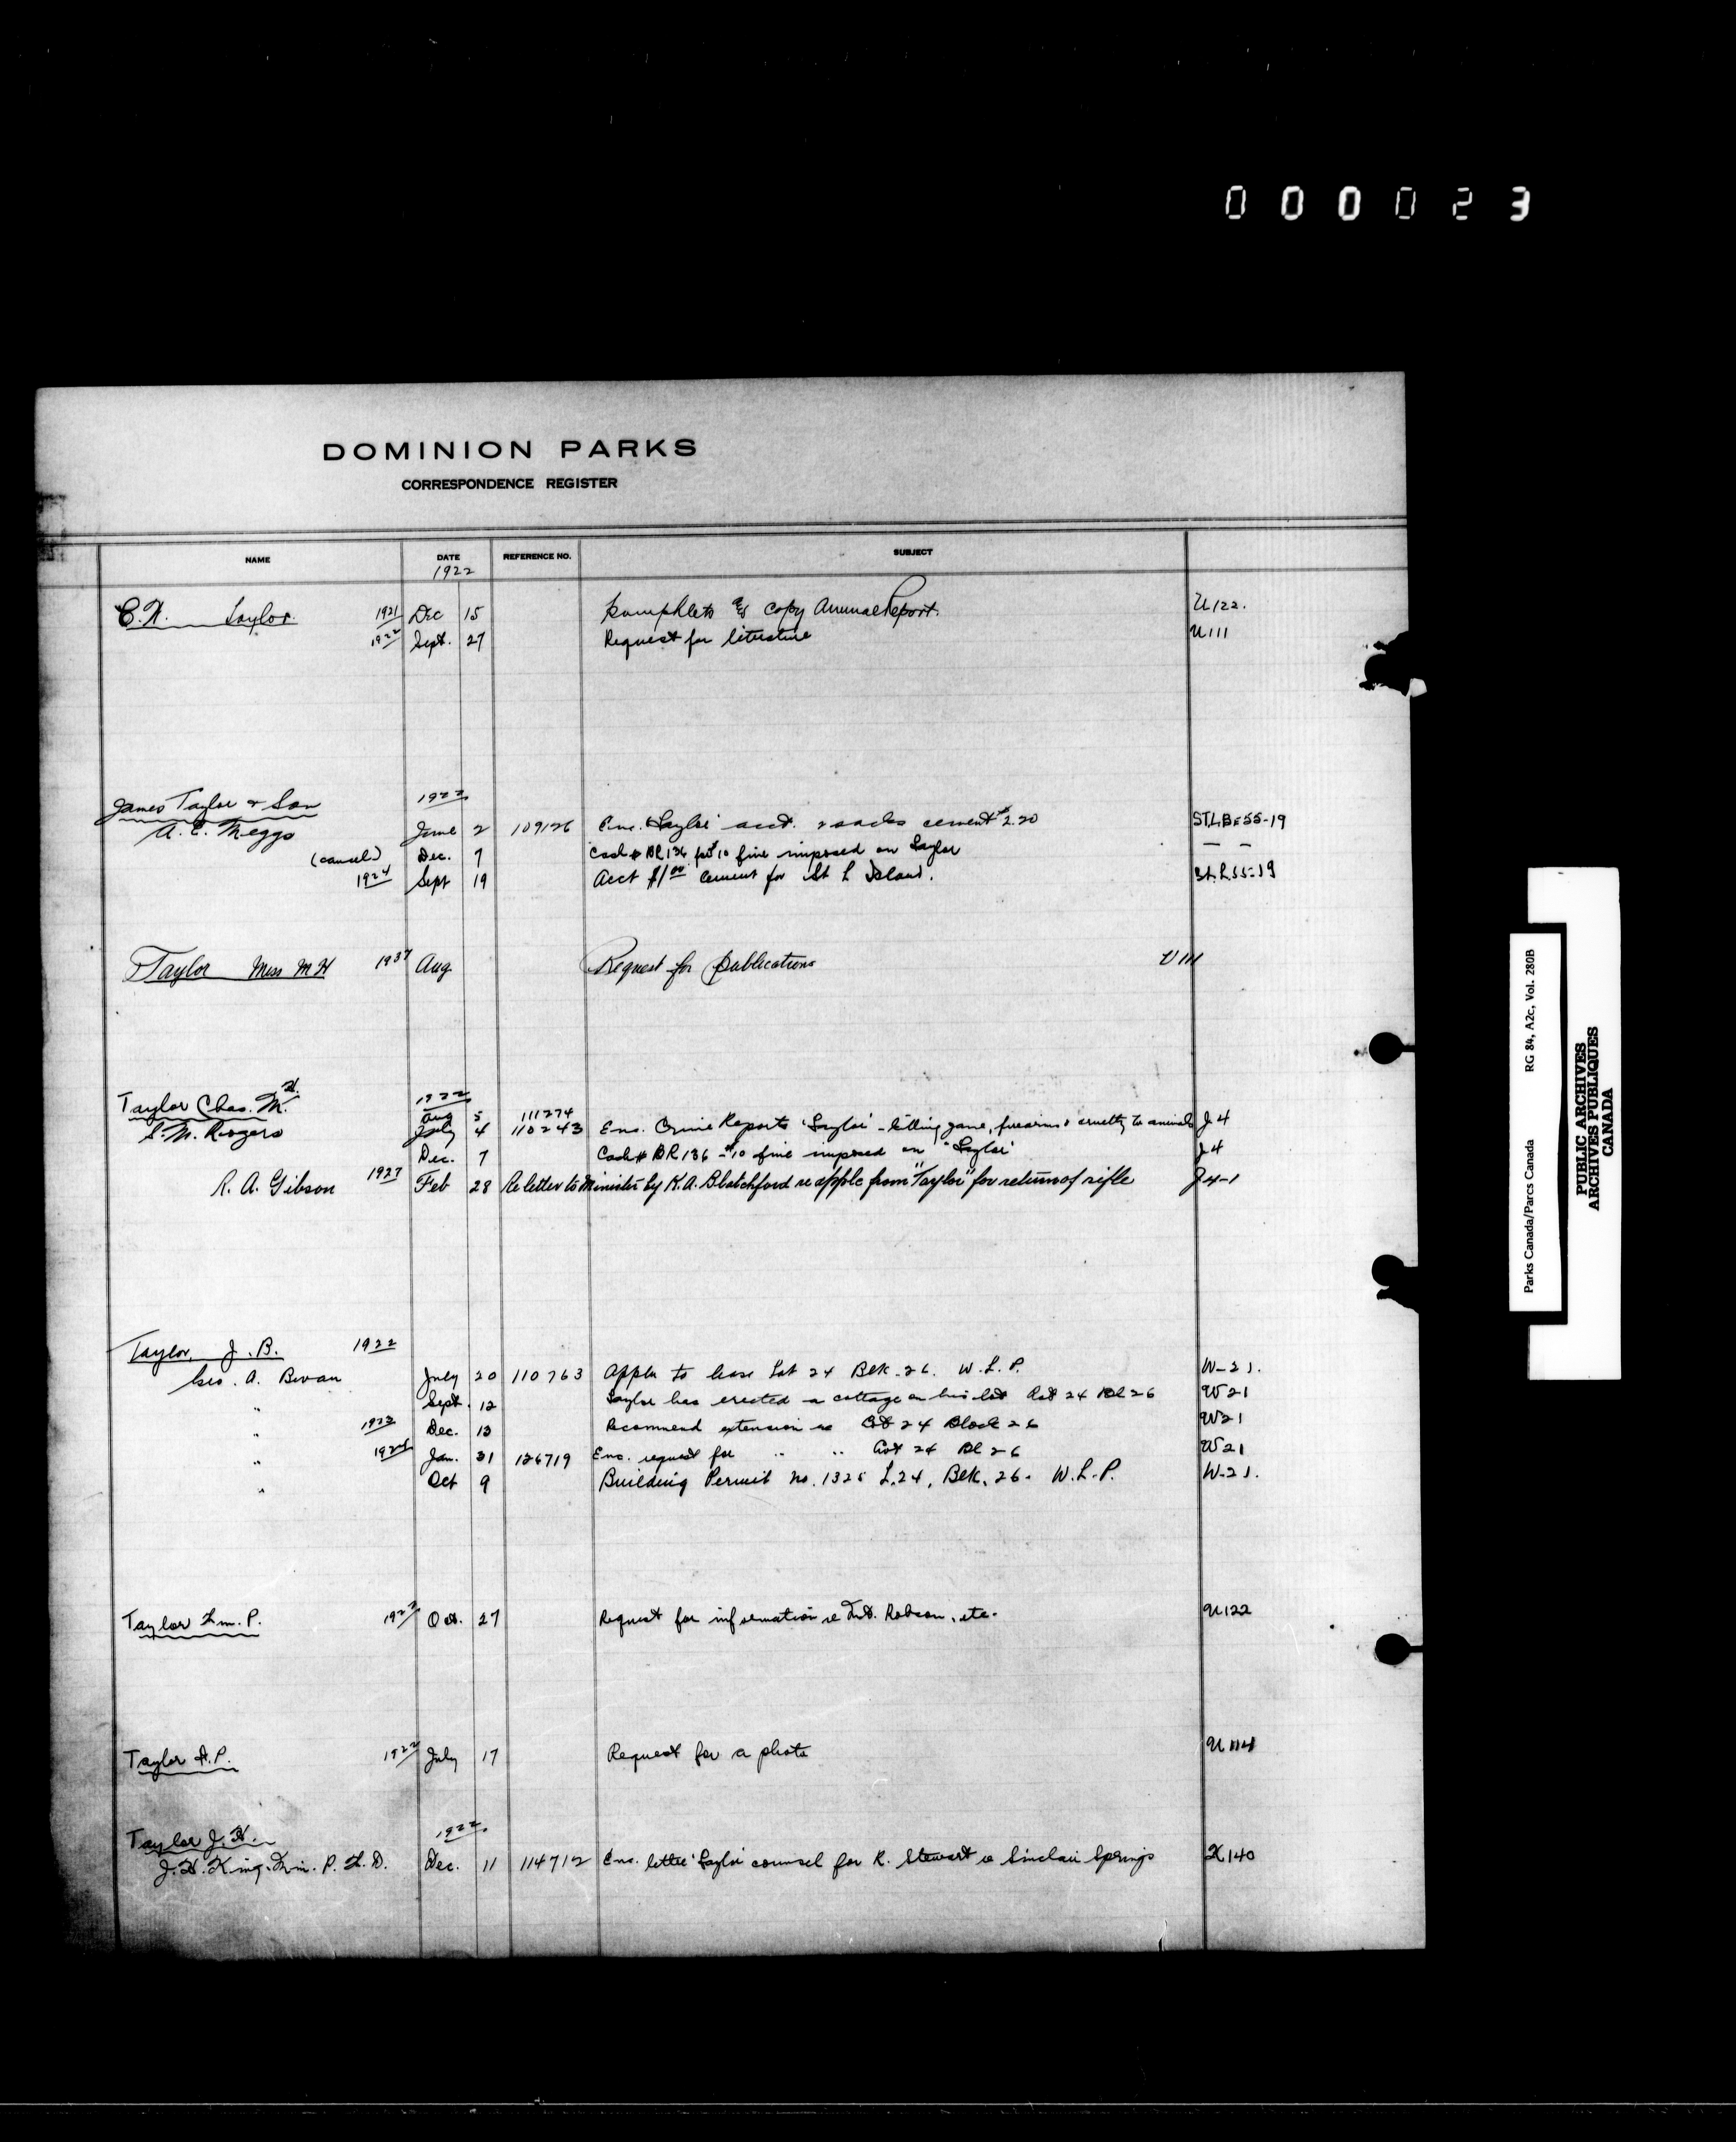 000023
DOMINION PARKS
CORRESPONDENCE REGISTER
NAME DATE REFERENCE NO. SUBJECT
1922
Taylor. 1921 Dec 15 Pamphlets & copy Annual Report. U122.
1922 Sept. 27 Request for literature U111
James Taylor & Son 1922
A. E. Meggs June 2 109126 Enc. "Taylor" acct. 2 sacks cement $2.20 ST.L.B=55-19
(cancel) Dec. 7 Cash # BR136 for $10 fine imposed on Taylor — —
1924 Sept 19 Acct $1.00 cement for St L Island. St.L.55-19
Taylor Miss M H 1937 Aug Request for publications U111
Taylor Chas. M. 1922
Aug 5 111274
S. M. Rogers July 4 110243 Enc. Crime Reports "Taylor" - killing game, firearms & cruelty to animals J4
Dec. 7 Cash # BR136 - $10 fine imposed on "Taylor" J4
R. A. Gibson 1927 Feb 28 Re letter to Minister by K. A. Blatchford re applc from "Taylor" for return of rifle J4-1
Taylor, J. B. 1922
Geo. A. Bevan July 20 110763 Appln to lease Lot 24 Blk. 26. W.L.P. W-21.
" Sept. 12 Taylor has erected a cottage on his lot Lot 24 Bl 26 W21
" 1923 Dec. 13 Recommend extension re Lot 24 Block 26 W21
" 1924 Jan. 31 126719 Enc. request for " " Lot 24 Bl 26 W21
" Oct 9 Building Permit no. 1325 L.24, Blk. 26. W.L.P. W-21.
Taylor Wm. P. 1922 Oct. 27 Request for information re Mt. Robson, etc. U122
Taylor H.P. 1922 July 17 Request for a photo U114
Taylor J. H. 1922.
J. H. King. Min. P. W. D. Dec. 11 114712 Enc. letter "Taylor" counsel for R. Stewart re Sinclair Springs K140
Parks Canada/Parcs Canada RG 84, A2c, Vol. 280B
PUBLIC ARCHIVES
ARCHIVES PUBLIQUES
CANADA